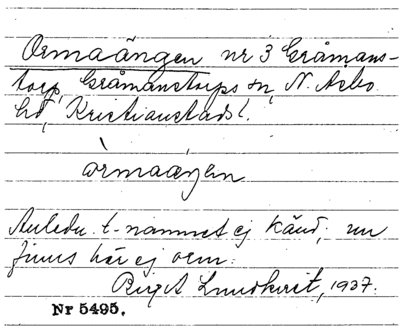 Ormaängen nr 3 Gråmans-
torp, Gråmanstorps sn, N. Åsbo
hd, Kristianstads l.
òrmaäŋen
Anledn. t. namnet ej känd; nu
finns här ej orm.
Birgit Lundkvist, 1937.
Nr 5495.